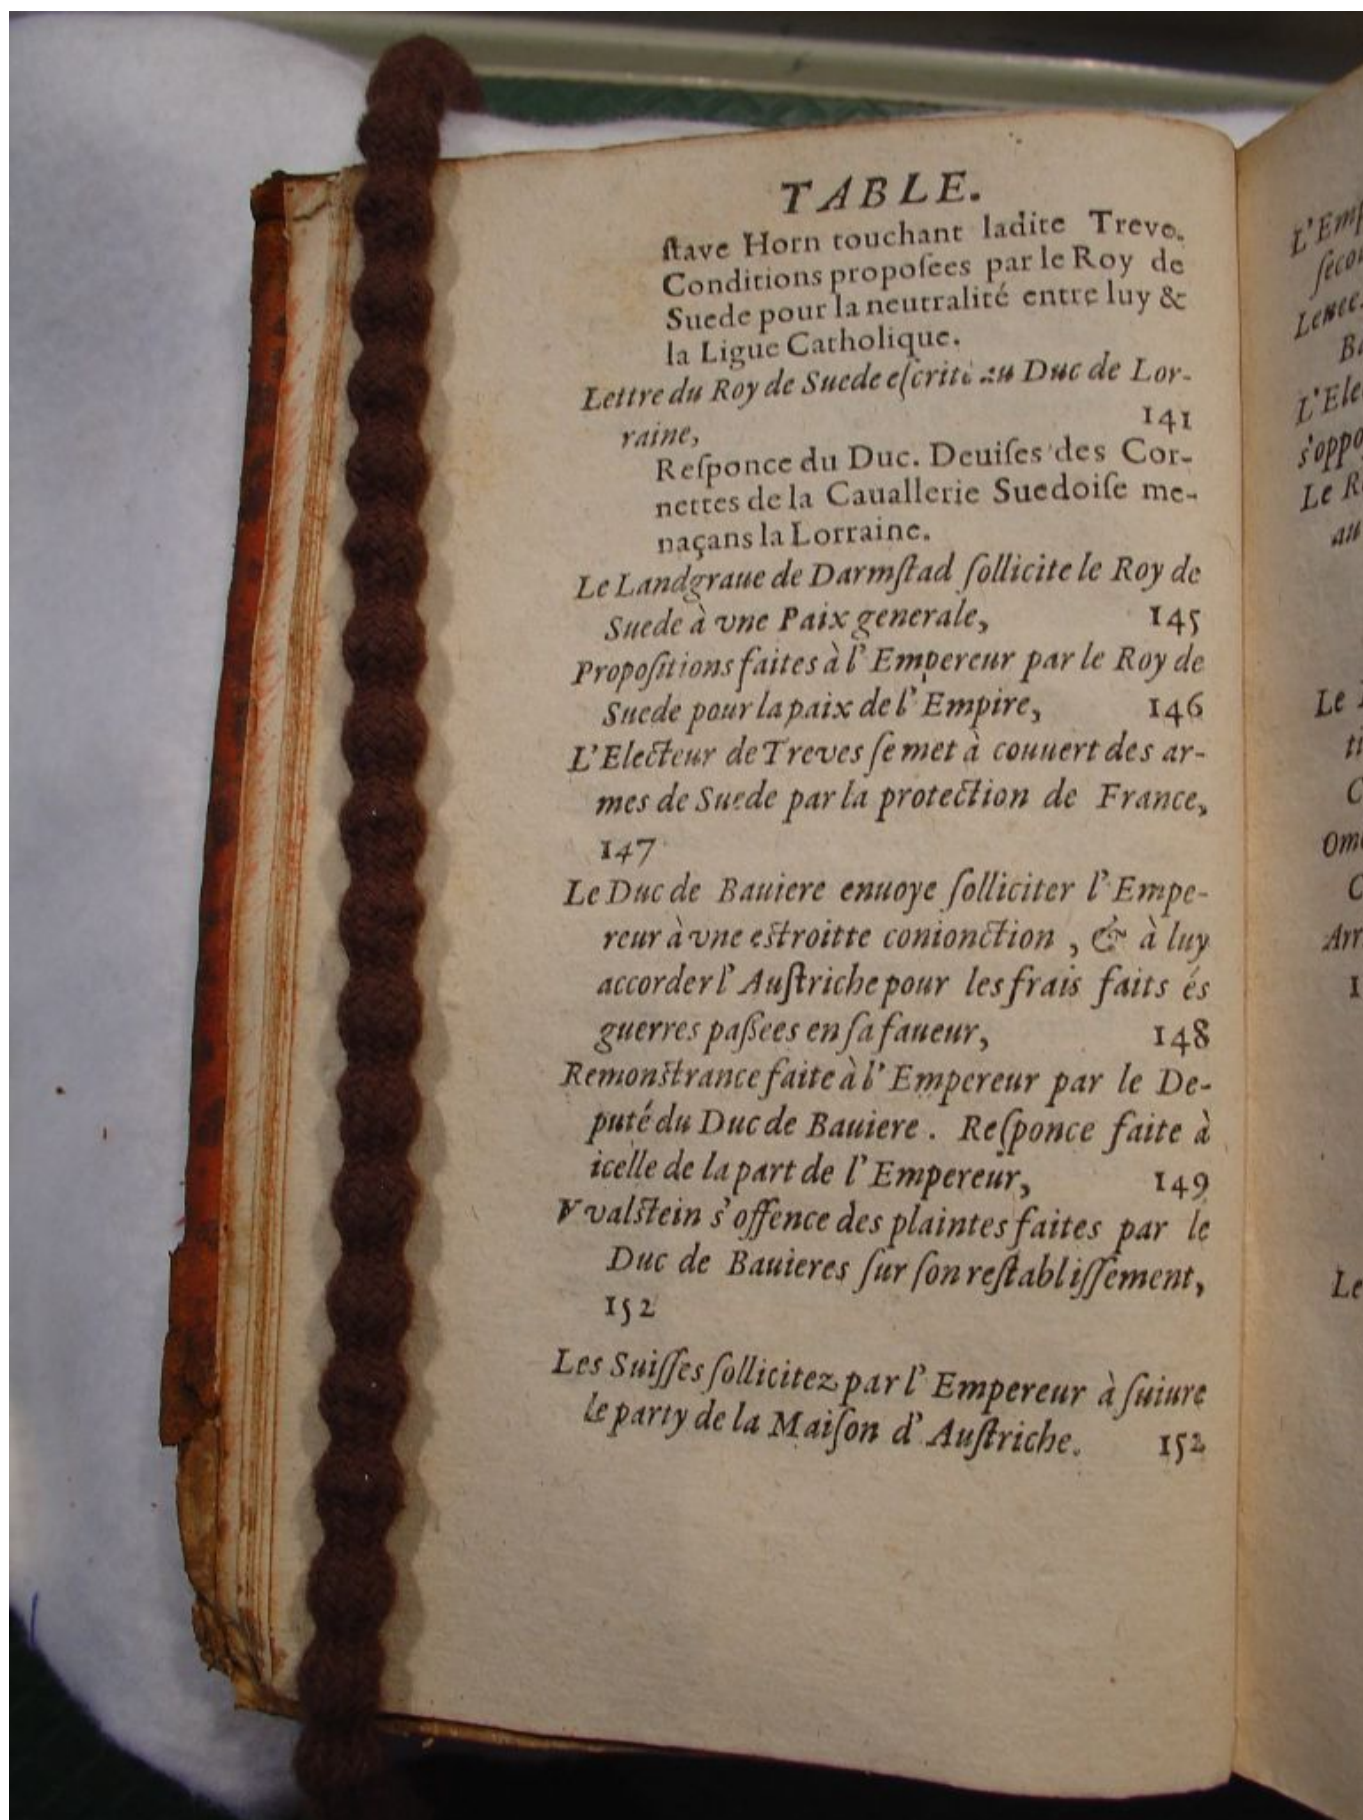 TABLE.
ſtave Horn touchant ladite Treve.
Conditions proposées par le Roy de
Suede pour la neutralité entre luy &
la Ligue Catholique.
Lettre du Roy de Suede eſcrite au Duc de Lor-
raine, 141
Reſponce du Duc. Deuiſes des Cor-
nettes de la Cauallerie Suedoiſe me-
naçans la Lorraine.
Le Landgraue de Darmſtad ſollicite le Roy de
Suede à vne Paix generale, 145
Propoſitions faites à l'Empereur par le Roy de
Suede pour la paix de l'Empire, 146
L'Electeur de Treves ſe met à couuert des ar-
mes de Suede par la protection de France,
147
Le Duc de Bauiere enuoye ſolliciter l'Empe-
reur à vne eſtroitte conionction, & à luy
accorder l'Auſtriche pour les frais faits és
guerres paſſees en ſa faueur, 148
Remonſtrance faite à l'Empereur par le De-
puté du Duc de Bauiere. Reſponce faite à
icelle de la part de l'Empereur, 149
VValſtein s'offence des plaintes faites par le
Duc de Bauieres ſur ſon reſtabliſſement,
152
Les Suiſſes ſollicitez par l'Empereur à ſuiure
le party de la Maiſon d'Auſtriche. 152
L'Emp
ſeco
Le
L'Ele
s'oppo
Le R
au
Le
ti
C
Om
C
Arr
1
Le